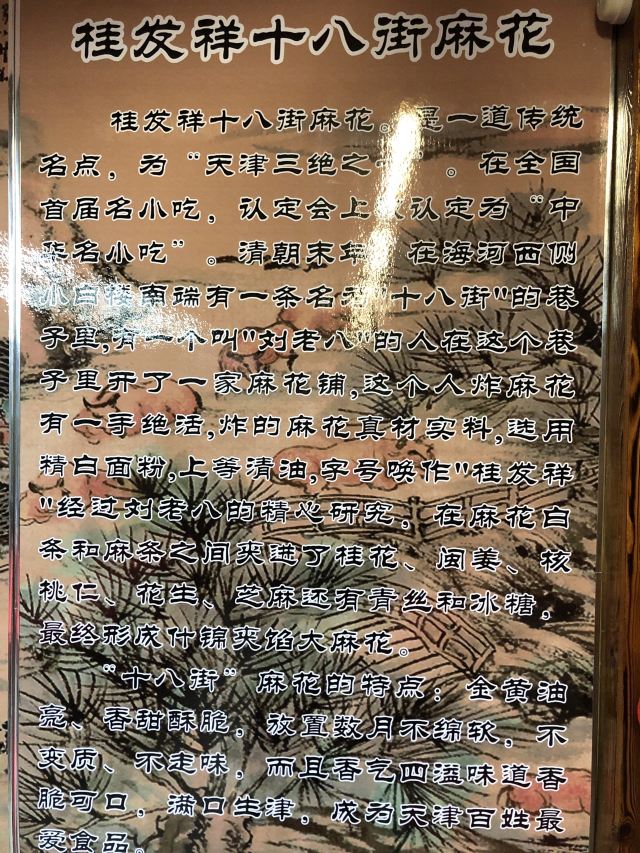 桂发祥十八街麻花
桂发祥十八街麻花。是一道传统
名点，为“天津三绝之一”。在全国
首届名小吃，认定会上被认定为“中
华名小吃”。清朝末年，在海河西侧
小白楼南端有一条名为"十八街"的巷
子里,有一个叫"刘老八"的人在这个巷
子里开了一家麻花铺,这个人炸麻花
有一手绝活,炸的麻花真材实料,选用
精白面粉,上等清油,字号唤作"桂发祥
"经过刘老八的精心研究，在麻花白
条和麻条之间夹进了桂花、闽姜、核
桃仁、花生、芝麻还有青丝和冰糖，
最终形成什锦夹馅大麻花。
“十八街”麻花的特点：金黄油
亮、香甜酥脆，放置数月不绵软，不
变质、不走味，而且香气四溢味道香
脆可口，满口生津，成为天津百姓最
爱食品。